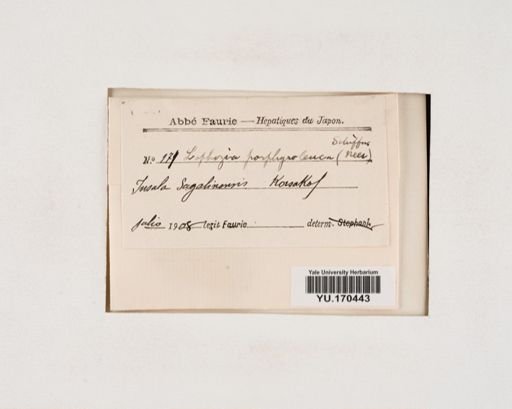 Abbé Faurie — Hepatiques du Japon.
Schiffner
No 127 Lophozia porphyroleuca (Nees)
Insula Sagalinensis Korsakof
julio 1908 legit Faurie determ. Stephani.
Yale University Herbarium
YU.170443